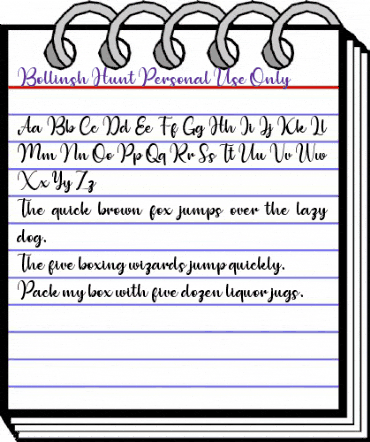 Bollinsh Hunt Personal Use Only
Aa Bb Cc Dd Ee Ff Gg Hh Ii Jj Kk Ll
Mm Nn Oo Pp Qq Rr Ss Tt Uu Vv Ww
Xx Yy Zz
The quick brown fox jumps over the lazy
dog.
The five boxing wizards jump quickly.
Pack my box with five dozen liquor jugs.